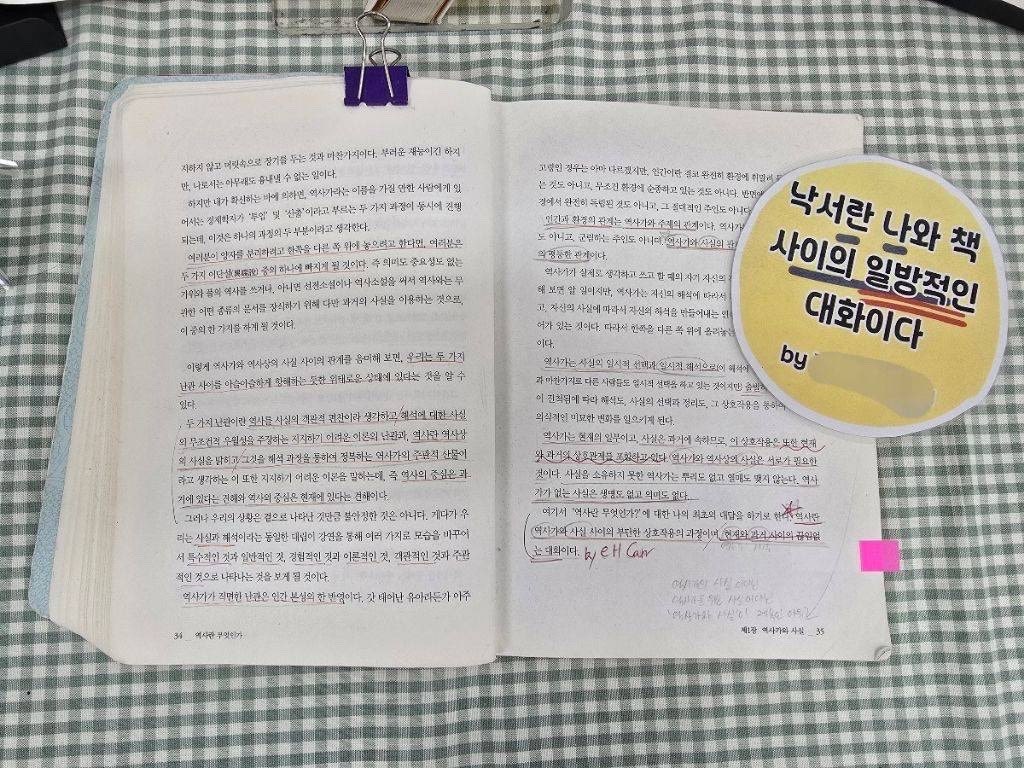 지하지 않고 머릿속으로 장기를 두는 것과 마찬가지이다. 부러운 재능이긴 하지
만, 나로서는 아무래도 흉내낼 수 없는 일이다.
하지만 내가 확신하는 바에 의하면, 역사가라는 이름을 가질 만한 사람에게 있
어서는 경제학자가 '투입' 및 '산출'이라고 부르는 두 가지 과정이 동시에 진행
되는데, 이것은 하나의 과정의 두 부분이라고 생각한다.
여러분이 양자를 분리하려고 한쪽을 다른 쪽 위에 놓으려고 한다면, 여러분은
두 가지 이단설(異端說) 중의 하나에 빠지게 될 것이다. 즉 의미도 중요성도 없는
가위와 풀의 역사를 쓰거나, 아니면 선전소설이나 역사소설을 써서 역사와는 무
관한 어떤 종류의 문서를 장식하기 위해 다만 과거의 사실을 이용하는 것으로,
이 중의 한 가지를 하게 될 것이다.
이렇게 역사가와 역사상의 사실 사이의 관계를 음미해 보면, 우리는 두 가지
난관 사이를 아슬아슬하게 항해하는 듯한 위태로운 상태에 있다는 것을 알 수
있다.
두 가지 난관이란 역사를 사실의 객관적 편찬이라 생각하고 해석에 대한 사실
의 무조건적 우월성을 주장하는 지지하기 어려운 이론의 난관과, 역사란 역사상
의 사실을 밝히고 그것을 해석 과정을 통하여 정복하는 역사가의 주관적 산물이
라고 생각하는 이 또한 지지하기 어려운 이론을 말하는데, 즉 역사의 중심은 과
거에 있다는 견해와 역사의 중심은 현재에 있다는 견해이다.
그러나 우리의 상황은 겉으로 나타난 것만큼 불안정한 것은 아니다. 게다가 우
리는 사실과 해석이라는 동일한 대립이 강연을 통해 여러 가지로 모습을 바꾸어
서 특수적인 것과 일반적인 것, 경험적인 것과 이론적인 것, 객관적인 것과 주관
적인 것으로 나타나는 것을 보게 될 것이다.
역사가가 직면한 난관은 인간 본성의 한 반영이다. 갓 태어난 유아라든가 아주
34 _ 역사란 무엇인가
고령인 경우는 아마 다르겠지만, 인간이란 결코 완전히 환경에 휘말려
는 것도 아니고, 무조건 환경에 순종하고 있는 것도 아니다. 반면에
경에서 완전히 독립된 것도 아니고, 그 절대적인 주인도 아니다
인간과 환경의 관계는 역사가와 주제의 관계이다. 역사가
도 아니고, 군림하는 주인도 아니다. 역사가와 사실의 관
의 평등한 관계이다.
역사가가 실제로 생각하고 쓰고 할 때의 자기 자신의
해 보면 알 일이지만, 역사가는 자신의 해석에 따라서
고, 자신의 사실에 따라서 자신의 해석을 만들어내는
어가 있는 것이다. 따라서 한쪽을 다른 쪽 위에 올려놓는
이다.
역사가는 사실의 일시적 선택과 일시적 해석으로
과 마찬가지로 다른 사람들도 일시적 선택을 하고 있는 것이지만 출발
이 진척됨에 따라 해석도, 사실의 선택과 정리도, 그 상호작용을 통하여
의식적인 미묘한 변화를 일으키게 된다.
역사가는 현재의 일부이고, 사실은 과거에 속하므로, 이 상호작용은 또한 현재
와 과거의 상호관계를 포함하고 있다. 역사가와 역사상의 사실은 서로가 필요한
것이다. 사실을 소유하지 못한 역사가는 뿌리도 없고 열매도 맺지 않는다. 역사
가가 없는 사실은 생명도 없고 의미도 없다.
여기서 '역사란 무엇인가?'에 대한 나의 최초의 대답을 하기로 한다. 역사란
역사가와 사실 사이의 부단한 상호작용의 과정이며, 현재와 과거 사이의 끊임없
는 대화이다. by EH Carr
제1장 역사가와 사실 _ 35
낙서란 나와 책
사이의 일방적인
대화이다
by